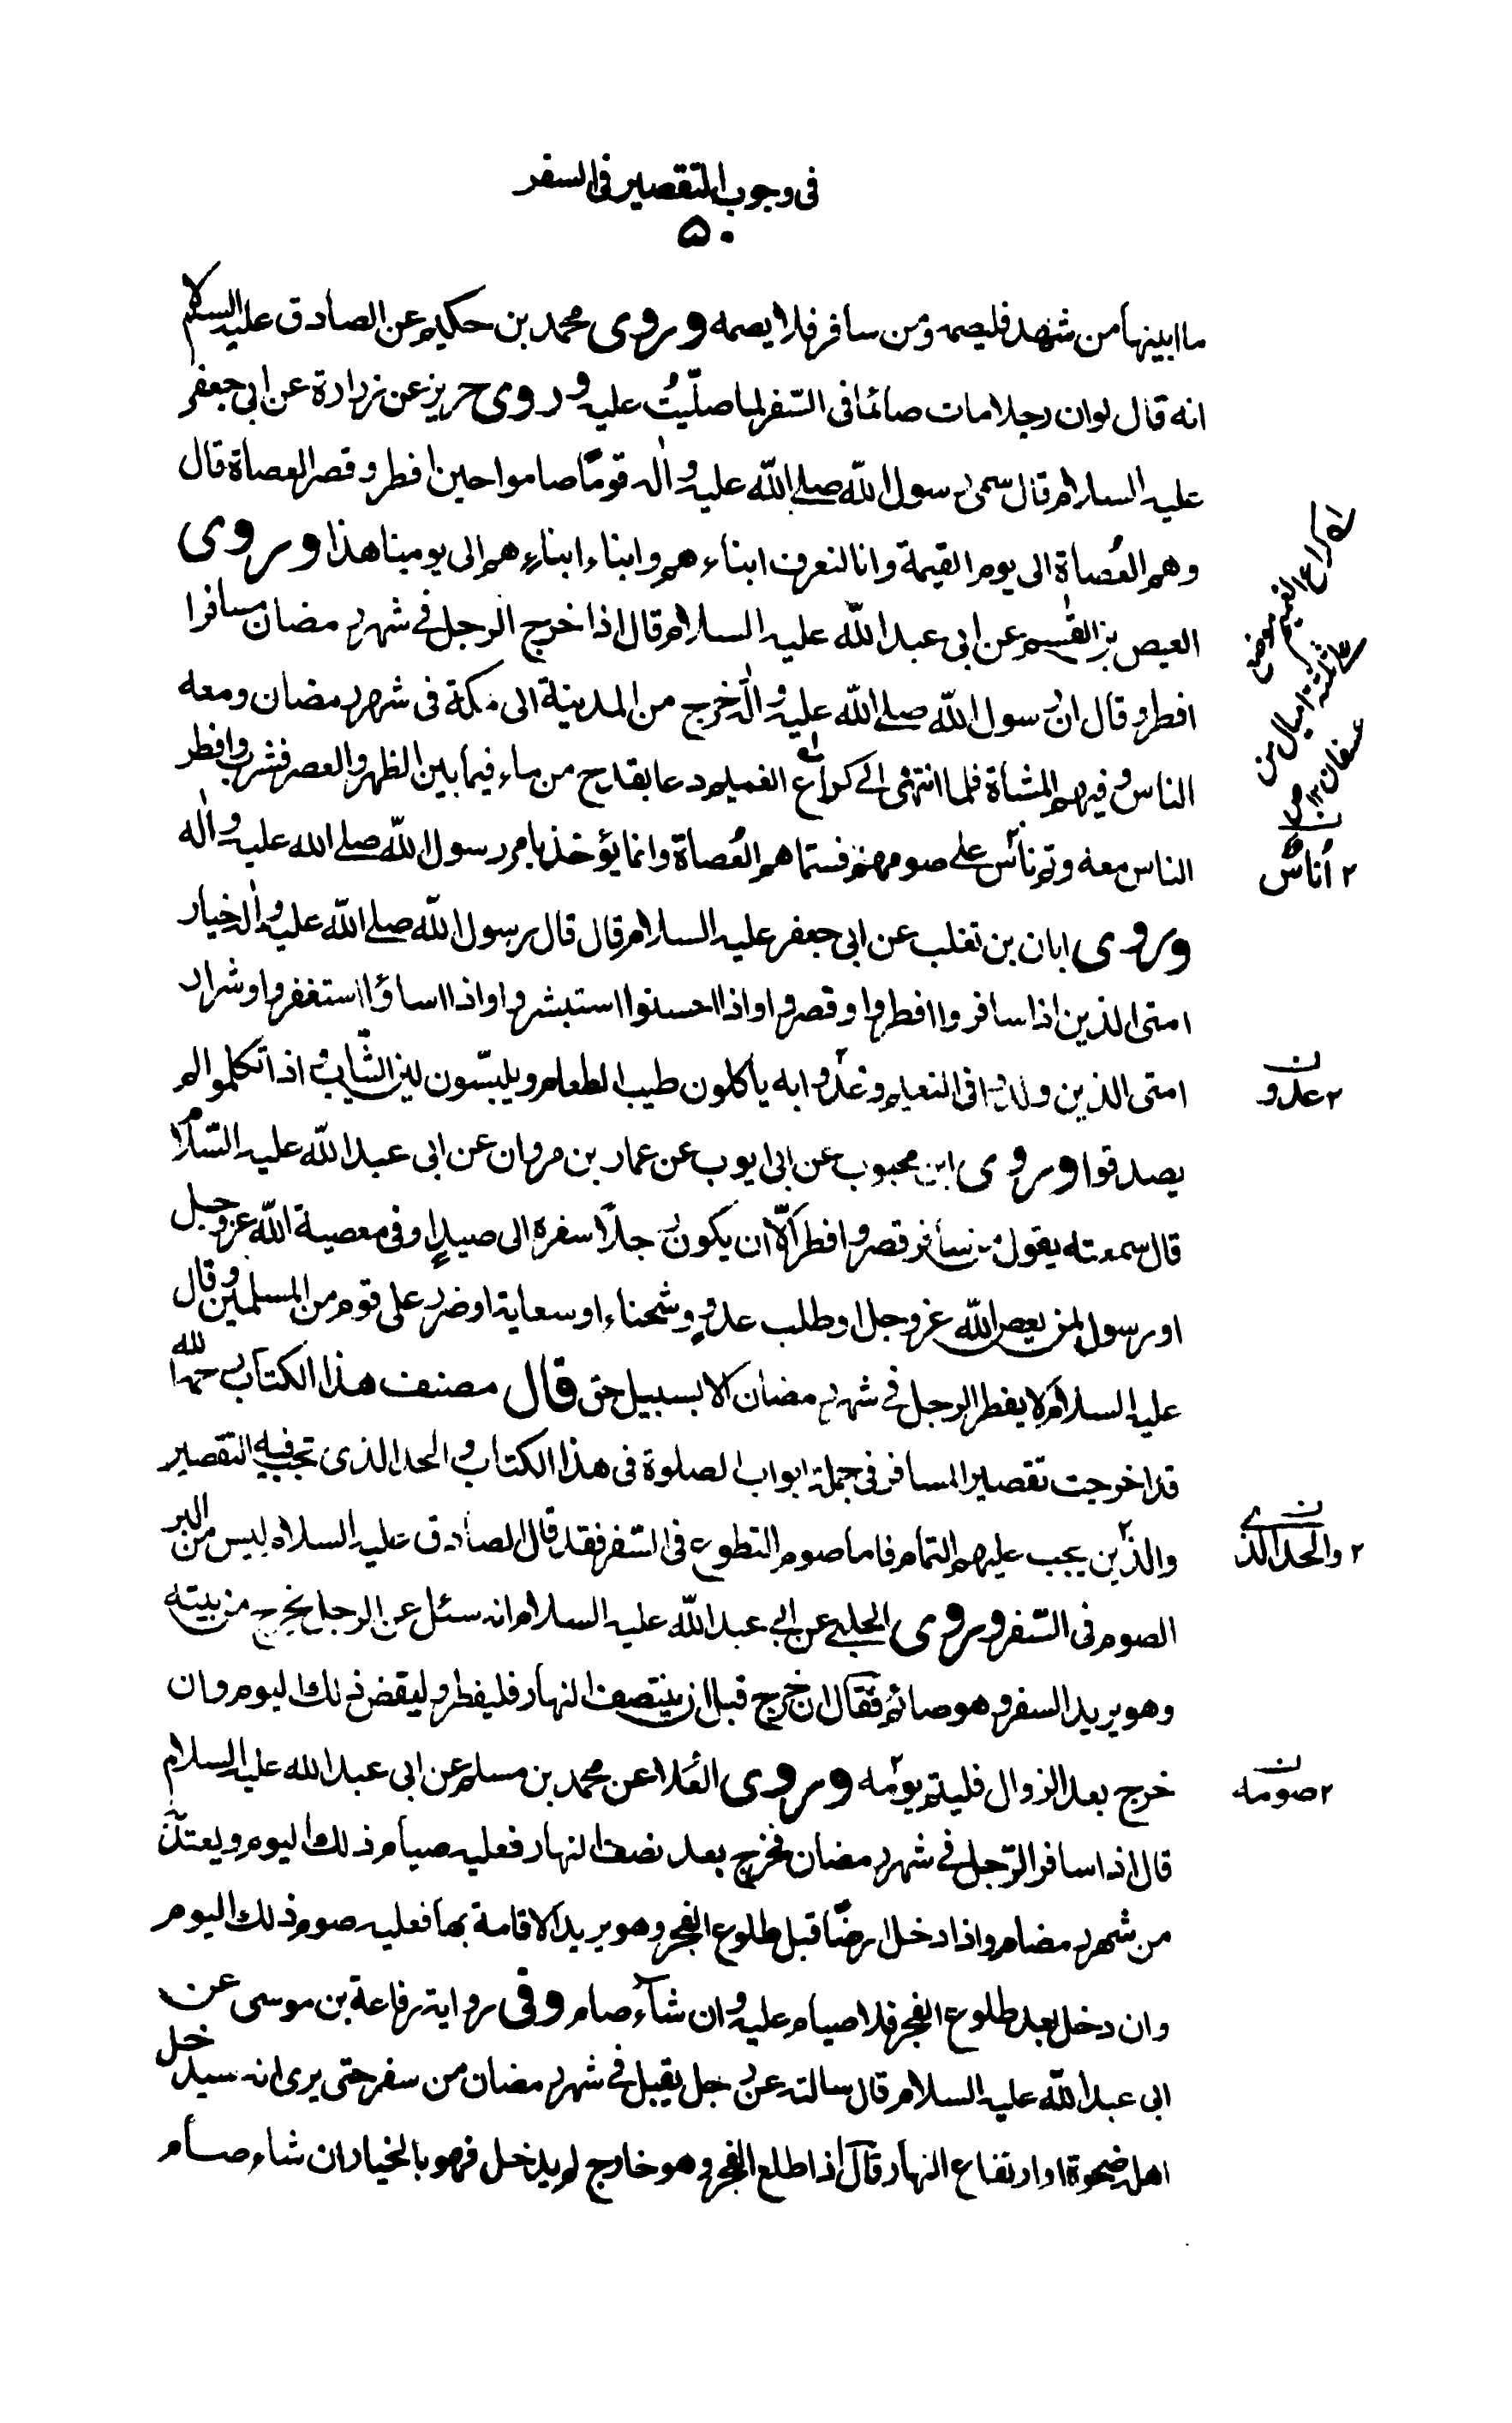 فى وجوب التقصير فى السفر
٥٠
ما ابينها من شهد فليصمه ومن سافر فلا يصمه وروى محمد بن حكيم عن الصادق عليه السلام
انه قال لوان رجلا مات صائما فى السّفر لما صلّيتُ عليه وروى حريز عن زرارة عن ابى جعفر
عليه السلام قال سمى رسول الله صلى الله عليه وآله قومًا صاموا حين افطر وقصر العصاة قال
وهم العُصاة الى يوم القيمة وانا لنعرف ابناءهم وابناء ابناءِهم الى يومنا هذا وروى
العيص بن القٰسم عن ابى عبد الله عليه السلام قال اذا خرج الرجل فى شهر رمضان مسافرا
افطر وقال ان رسول الله صلى الله عليه وآله خرج من المدينة الى مكة فى شهر رمضان ومعه
الناس وفيهم المشاة فلما انتهى الى كراع الغميم دعا بقدح من ماء فيما بين الظهر والعصر فشرب وافطر
الناس معه وتم ناس على صومهم فسمّاهم العُصاة وانما يؤخذ بامر رسول الله صلى الله عليه وآله
وروى ابان بن تغلب عن ابى جعفر عليه السلام قال قال رسول الله صلى الله عليه وآله خيار
امتى الذين اذا سافروا افطروا وقصروا واذا احسنوا استبشروا واذا اساؤا استغفروا وشرار
امتى الذين ولدوا فى النعيم وغذوا به ياكلون طيب الطعام ويلبسون لين الثياب واذا تكلموا لم
يصدقوا وروى ابن محبوب عن ابى ايوب عن عمار بن مروان عن ابى عبد الله عليه السّلام
قال سمعته يقول من سافر قصر وافطر الّا ان يكون رجلًا سفره الى صيدٍ او فى معصية الله عز وجل
او رسول لمن يعص الله عز وجل او طلب عدوٍ وشحناء او سعاية او ضرر على قوم من المسلمين وقال
عليه السلام لا يفطر الرجل فى شهر رمضان الا بسبيل حق قال مصنف هذا الكتاب رحمه الله
قد اخرجت تقصير المسافر فى جملة ابواب الصلوة فى هذا الكتاب والحد الذى يجب فيه التقصير
والذين يجب عليهم التمام فاما صوم التطوع فى السّفر فقد قال الصادق عليه السلام ليس من البر
الصوم فى السّفر وروى الحلبى عن ابى عبد الله عليه السلام انه سئل عن الرجل يخرج من بيته
وهو يريد السفر وهو صائم فقال ان خرج قبل ان ينتصف النهار فليفطر وليقض ذلك اليوم وان
خرج بعد الزوال فليتم يومه وروى العُلا عن محمد بن مسلم عن ابى عبد الله عليه السلام
قال اذا سافر الرّجل فى شهر رمضان فخرج بعد نصف النهار فعليه صيام ذلك اليوم ويعتدّ به
من شهر رمضان واذا دخل ارضًا قبل طلوع الفجر وهو يريد الاقامة بها فعليه صوم ذلك اليوم
وان دخل بعد طلوع الفجر فلا صيام عليه وان شآء صام وفى رواية رفاعة بن موسى عن
ابى عبد الله عليه السلام قال سالته عن رجل يقبل فى شهر رمضان من سفر حتى يرى انه سيدخل
اهله ضحوة او ارتفاع النهار قال اذا طلع الفجر وهو خارج لم يدخل فهو بالخيار ان شاء صام
كراع الغميم موضع
على ثلثة اميال من
عسفان ١٢ ص
٢ اُناسٌ
ن
٢ عدو
ن
٢ والحد الذى
ن
٢ صومه